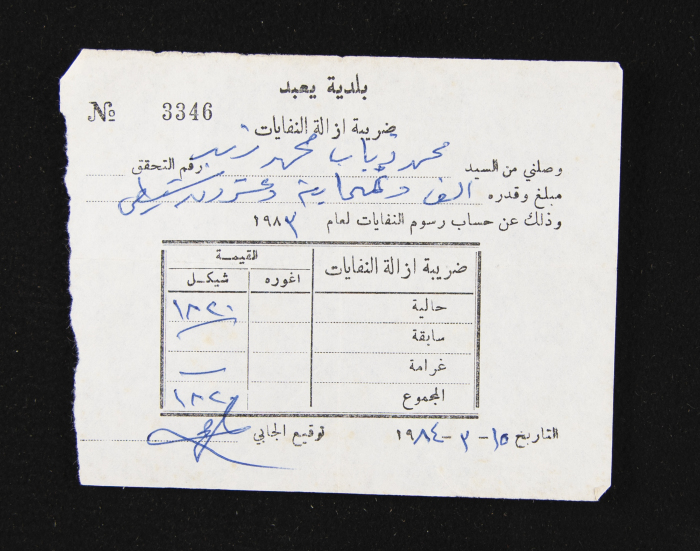 بلدية يعبد
№ 3346
ضريبة ازالة النفايات
وصلني من السيد محمد ذياب محمد زيد رقم التحقق
مبلغ وقدره الف وثمنماية وعشرون شيقل
وذلك عن حساب رسوم النفايات لعام ١٩٨٣
ضريبة ازالة النفايات القيمـة
شيكـل اغوره
حالية ١٨٢٠
سابقة
غرامة —
المجموع ١٨٢٠
التاريخ ١٥-٣-١٩٨٤ توقيع الجابي